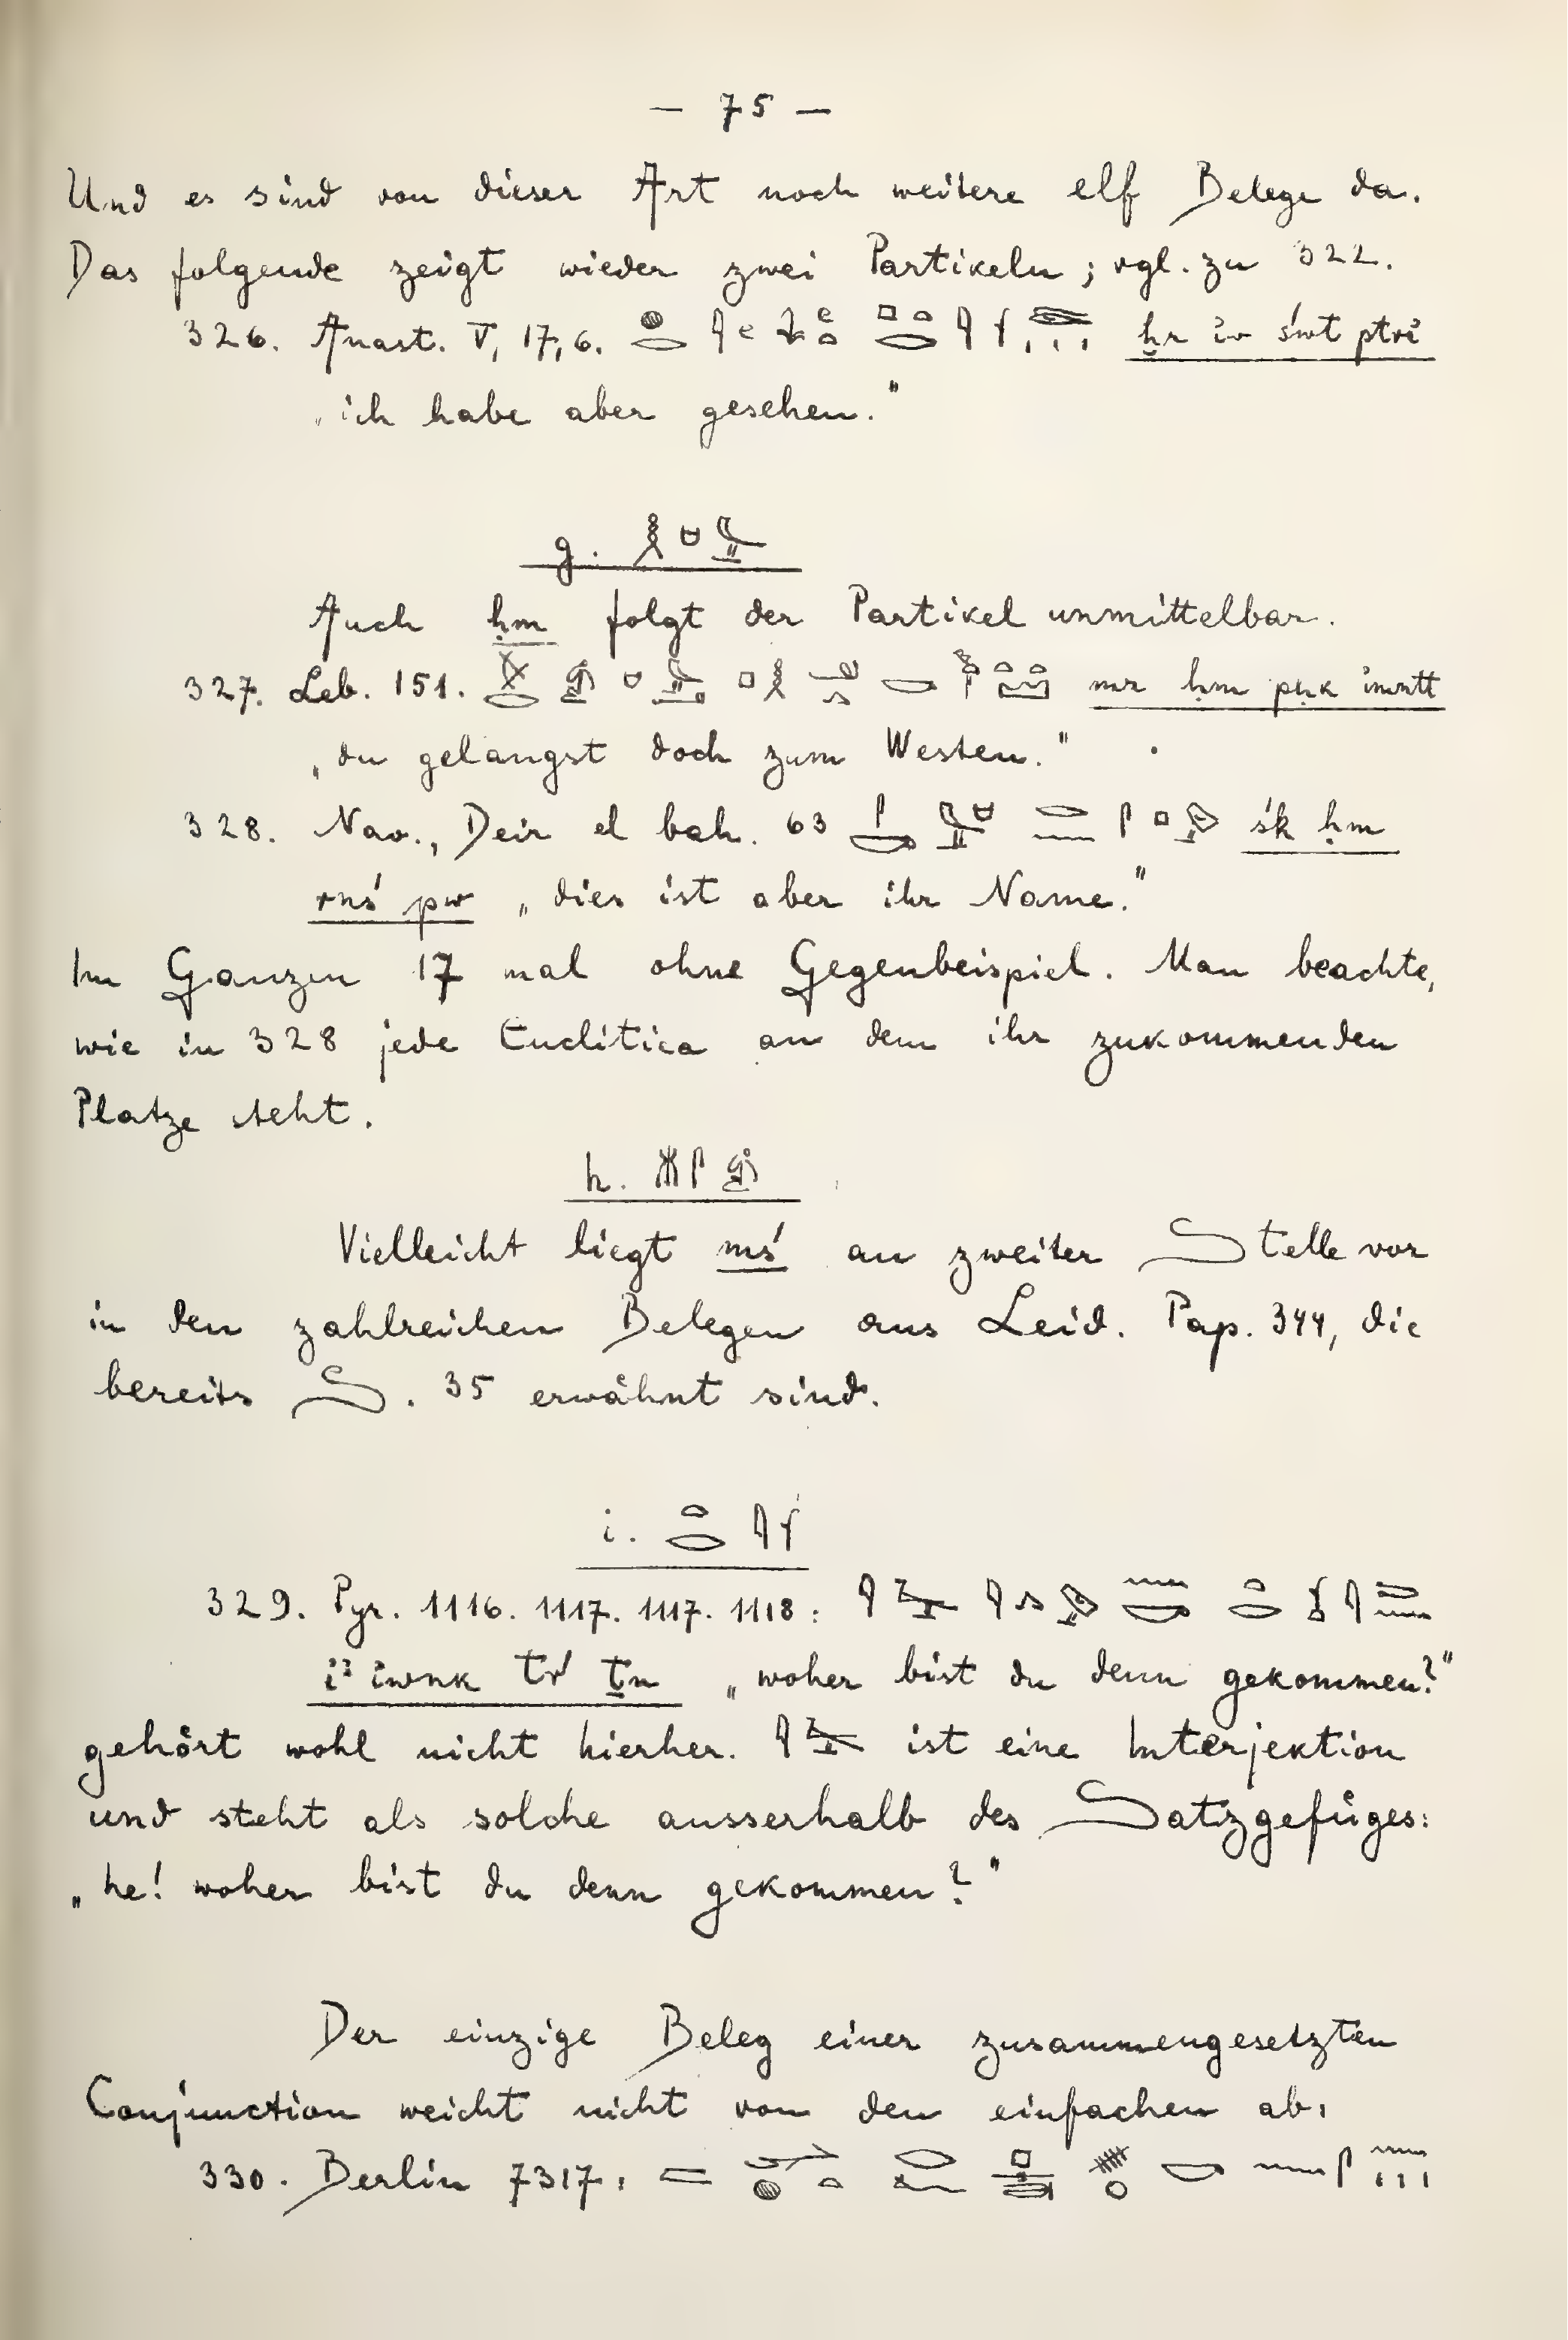 — 75 —
Und es sind von dieser Art noch weitere elf Belege da.
Das folgende zeigt wieder zwei Partikeln; vgl. zu 322.
326. Anast. V, 17, 6. ḫr iw śwt ptri
„ich habe aber gesehen."
g.
Auch ḥm folgt der Partikel unmittelbar.
327. Leb. 151. mr ḥm pḥk imntt
„du gelangst doch zum Westen."
328. Nav., Deir el bah. 63 śk ḥm
rnś pw „dies ist aber ihr Name."
Im Ganzen 17 mal ohne Gegenbeispiel. Man beachte,
wie in 328 jede Enclitica an dem ihr zukommenden
Platze steht.
h.
Vielleicht liegt mś an zweiter Stelle vor
in den zahlreichen Belegen aus Leid. Pap. 344, die
bereits S. 35 erwähnt sind.
i.
329. Pyr. 1116. 1117. 1117. 1118:
iꜣ iwnk tr ṯn „woher bist du denn gekommen?"
gehört wohl nicht hierher. ist eine Interjektion
und steht als solche ausserhalb des Satzgefüges:
„he! woher bist du denn gekommen?"
Der einzige Beleg einer zusammengesetzten
Conjunction weicht nicht von den einfachen ab:
330. Berlin 7317: